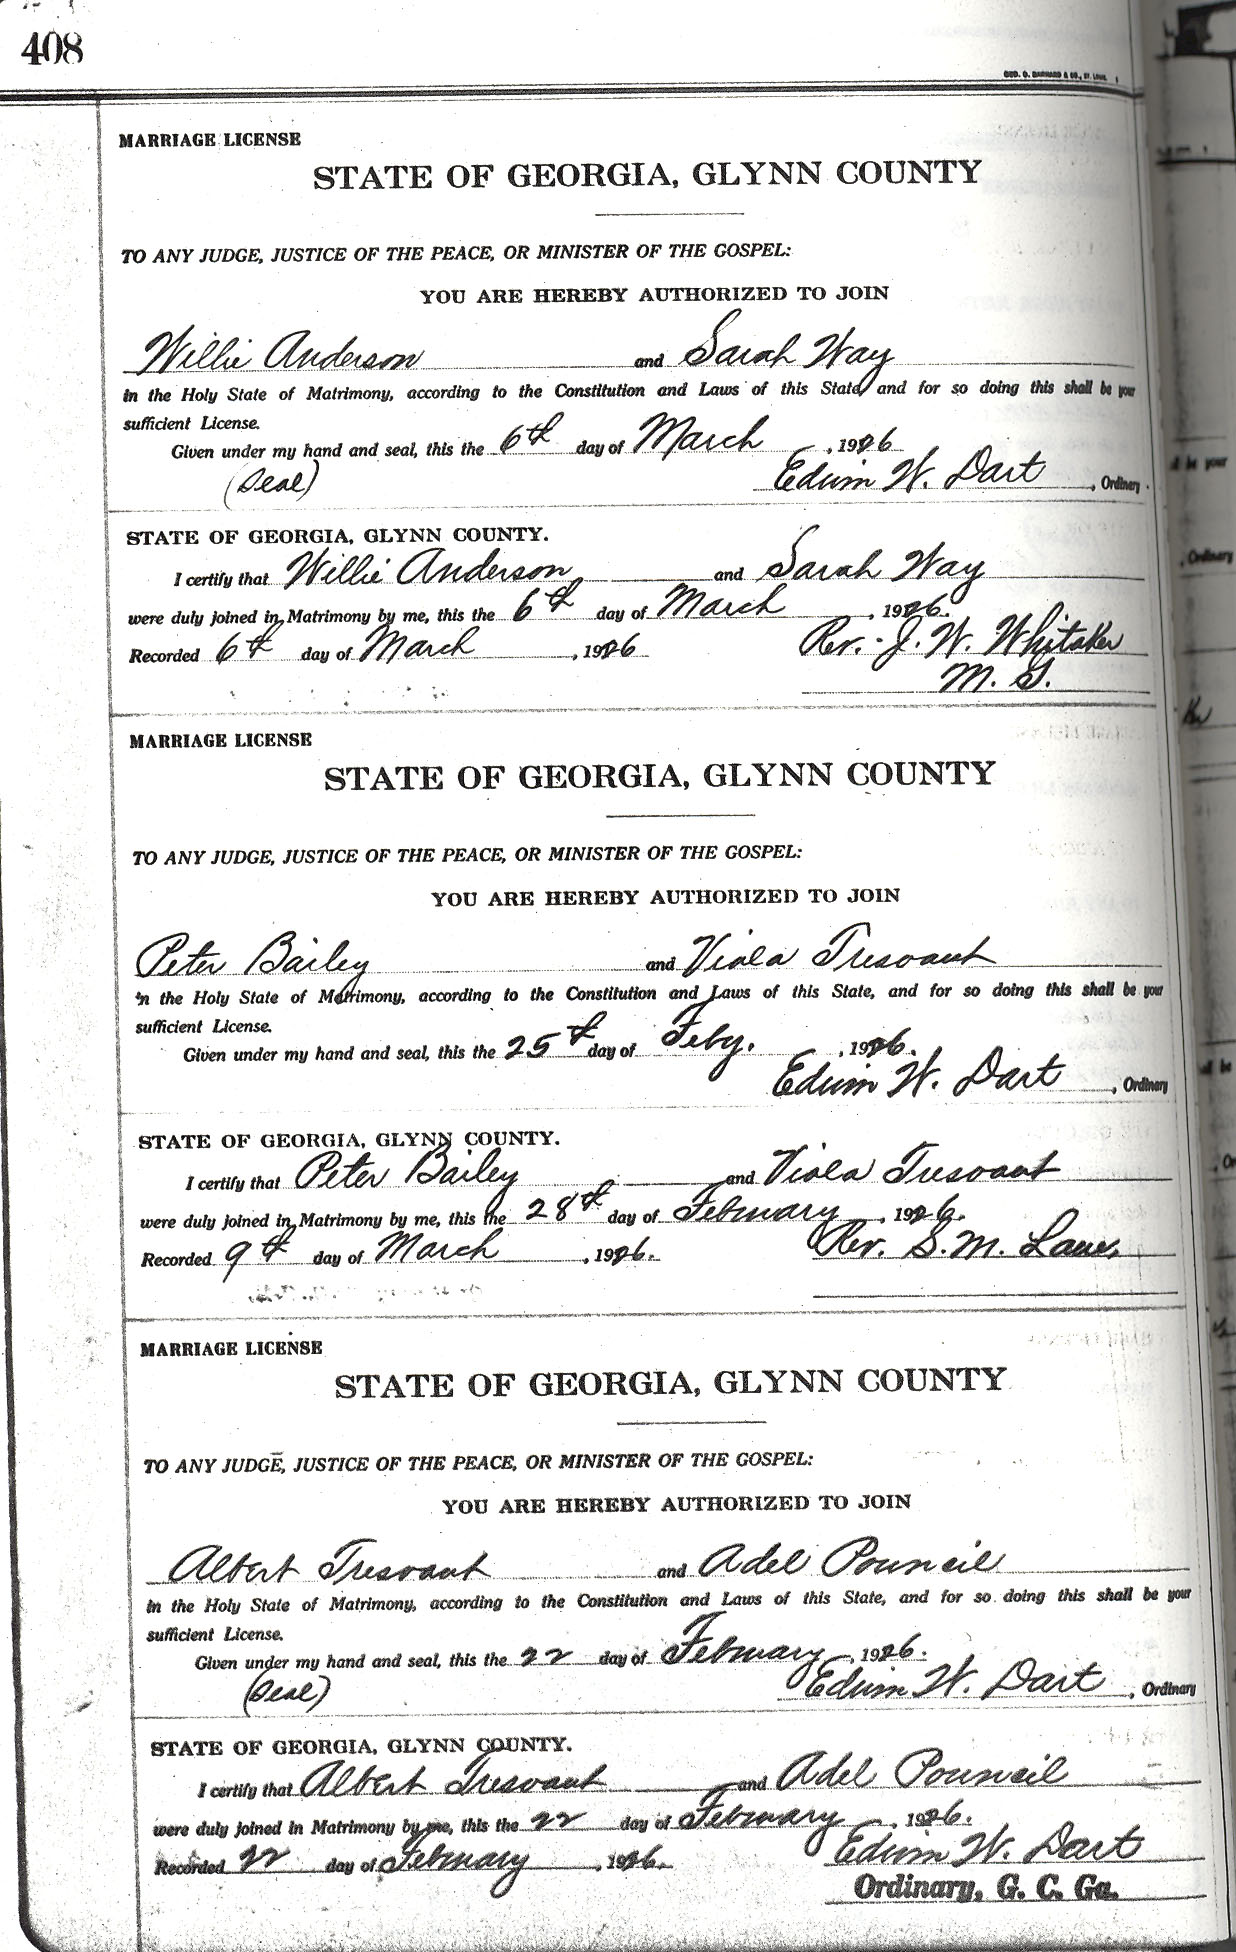 408
GEO. D. BARNARD & CO., ST. LOUIS
MARRIAGE LICENSE
STATE OF GEORGIA, GLYNN COUNTY
TO ANY JUDGE, JUSTICE OF THE PEACE, OR MINISTER OF THE GOSPEL:
YOU ARE HEREBY AUTHORIZED TO JOIN
Willie Anderson and Sarah Way
in the Holy State of Matrimony, according to the Constitution and Laws of this State, and for so doing this shall be your
sufficient License.
Given under my hand and seal, this the 6th day of March, 1926
(Seal) Edwin W. Dart, Ordinary.
STATE OF GEORGIA, GLYNN COUNTY.
I certify that Willie Anderson and Sarah Way
were duly joined in Matrimony by me, this the 6th day of March, 1926.
Recorded 6th day of March, 1926 Rev. J. W. Whitaker
M. G.
MARRIAGE LICENSE
STATE OF GEORGIA, GLYNN COUNTY
TO ANY JUDGE, JUSTICE OF THE PEACE, OR MINISTER OF THE GOSPEL:
YOU ARE HEREBY AUTHORIZED TO JOIN
Peter Bailey and Viola Tresvant
in the Holy State of Matrimony, according to the Constitution and Laws of this State, and for so doing this shall be your
sufficient License.
Given under my hand and seal, this the 25th day of Feby., 1926.
Edwin W. Dart, Ordinary
STATE OF GEORGIA, GLYNN COUNTY.
I certify that Peter Bailey and Viola Tresvant
were duly joined in Matrimony by me, this the 28th day of February, 1926.
Recorded 9th day of March, 1926. Rev. S. M. Lane,
MARRIAGE LICENSE
STATE OF GEORGIA, GLYNN COUNTY
TO ANY JUDGE, JUSTICE OF THE PEACE, OR MINISTER OF THE GOSPEL:
YOU ARE HEREBY AUTHORIZED TO JOIN
Albert Tresvant and Adel Pouncil
in the Holy State of Matrimony, according to the Constitution and Laws of this State, and for so doing this shall be your
sufficient License.
Given under my hand and seal, this the 22 day of February, 1926.
(Seal) Edwin W. Dart, Ordinary
STATE OF GEORGIA, GLYNN COUNTY.
I certify that Albert Tresvant and Adel Pouncil
were duly joined in Matrimony by me, this the 22 day of February, 1926.
Recorded 22 day of February, 1926. Edwin W. Dart
Ordinary, G. C. Ga.